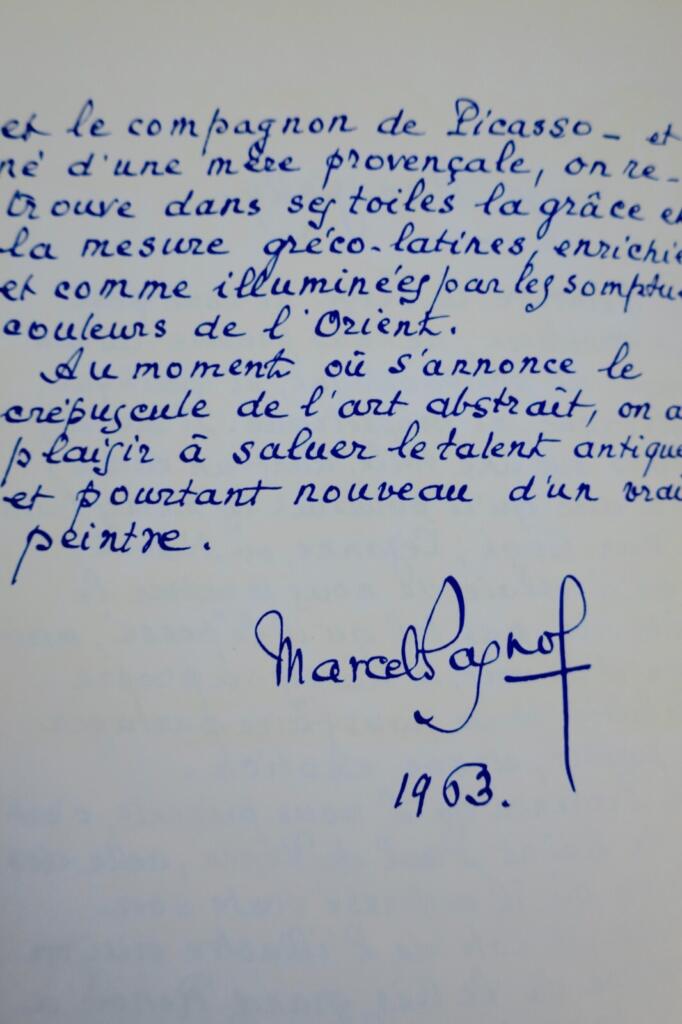 et le compagnon de Picasso - et
né d'une mère provençale, on re-
trouve dans ses toiles la grâce et
la mesure gréco-latines, enrichie
et comme illuminées par les somptu
couleurs de l'Orient.
Au moment où s'annonce le
crépuscule de l'art abstraît, on a
plaisir à saluer le talent antique
et pourtant nouveau d'un vrai
peintre.
Marcel Pagnol
1963.